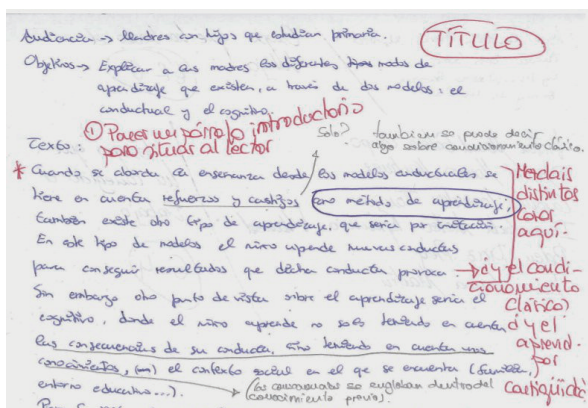 Audiencia → Madres con hijos que estudian primaria.
TÍTULO
Objetivo → Explicar a las madres los diferentes modos de
aprendizaje que existen, a través de dos modelos: el
conductual y el cognitivo.
① Poner un párrafo introductorio
para situar al lector
Solo?
también se puede decir
algo sobre condicionamiento clásico.
Texto:
* Cuando se aborda la enseñanza desde los modelos conductuales se
tiene en cuenta refuerzos y castigos como método de aprendizaje,
también existe otro tipo de aprendizaje, que sería por imitación.
En este tipo de modelos el niño aprende nuevas conductas
para conseguir resultados que dicha conducta provoca
Mezclais
distintos
cosas
aquí.
→ ¿y el condi-
cionamiento
clásico?
Sin embargo otro punto de vista sobre el aprendizaje sería el
cognitivo, donde el niño aprende no solo teniendo en cuenta
las consecuencias de su conducta, sino teniendo en cuenta unos
conocimientos, el contexto social en el que se encuentra (familia,
entorno educativo...).
¿y el
aprend.
por
contigüidad
(los conocimientos se engloban dentro del
conocimiento previo).